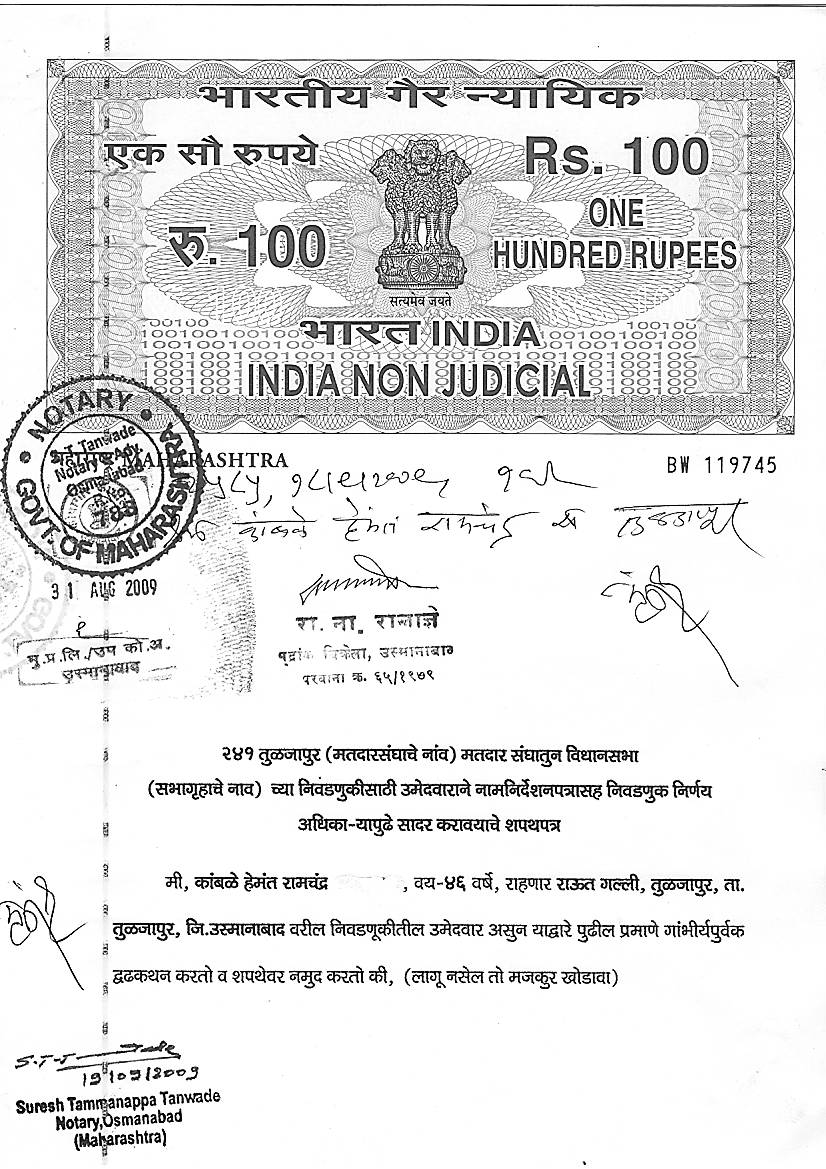 भारतीय गैर न्यायिक
एक सौ रुपये
Rs. 100
रु. 100
ONE
HUNDRED RUPEES
सत्यमेव जयते
भारत INDIA
INDIA NON JUDICIAL
महाराष्ट्र MAHARASHTRA
BW 119745
NOTARY
S.T. Tanwade
Notary & Adv.
Osmanabad
783
GOVT. OF MAHARASHTRA
कांबळे हेमंत रामचंद्र
31 AUG 2009
मु.प्र.लि./उप को.अ.
उस्मानाबाद
मुद्रांक विक्रेता, उस्मानाबाद
परवाना क्र. ६५/१९७९
२४१ तुळजापूर (मतदारसंघाचे नांव) मतदार संघातुन विधानसभा
(सभागृहाचे नाव) च्या निवडणुकीसाठी उमेदवाराने नामनिर्देशनपत्रासह निवडणुक निर्णय
अधिका-यापुढे सादर करावयाचे शपथपत्र
मी, कांबळे हेमंत रामचंद्र , वय-४६ वर्षे, राहणार राऊत गल्ली, तुळजापुर, ता.
तुळजापुर, जि.उस्मानाबाद वरील निवडणूकीतील उमेदवार असुन याद्वारे पुढील प्रमाणे गांभीर्यपुर्वक
द्वढकथन करतो व शपथेवर नमुद करतो की, (लागू नसेल तो मजकुर खोडावा)
19/09/2009
Suresh Tammanappa Tanwade
Notary,Osmanabad
(Maharashtra)